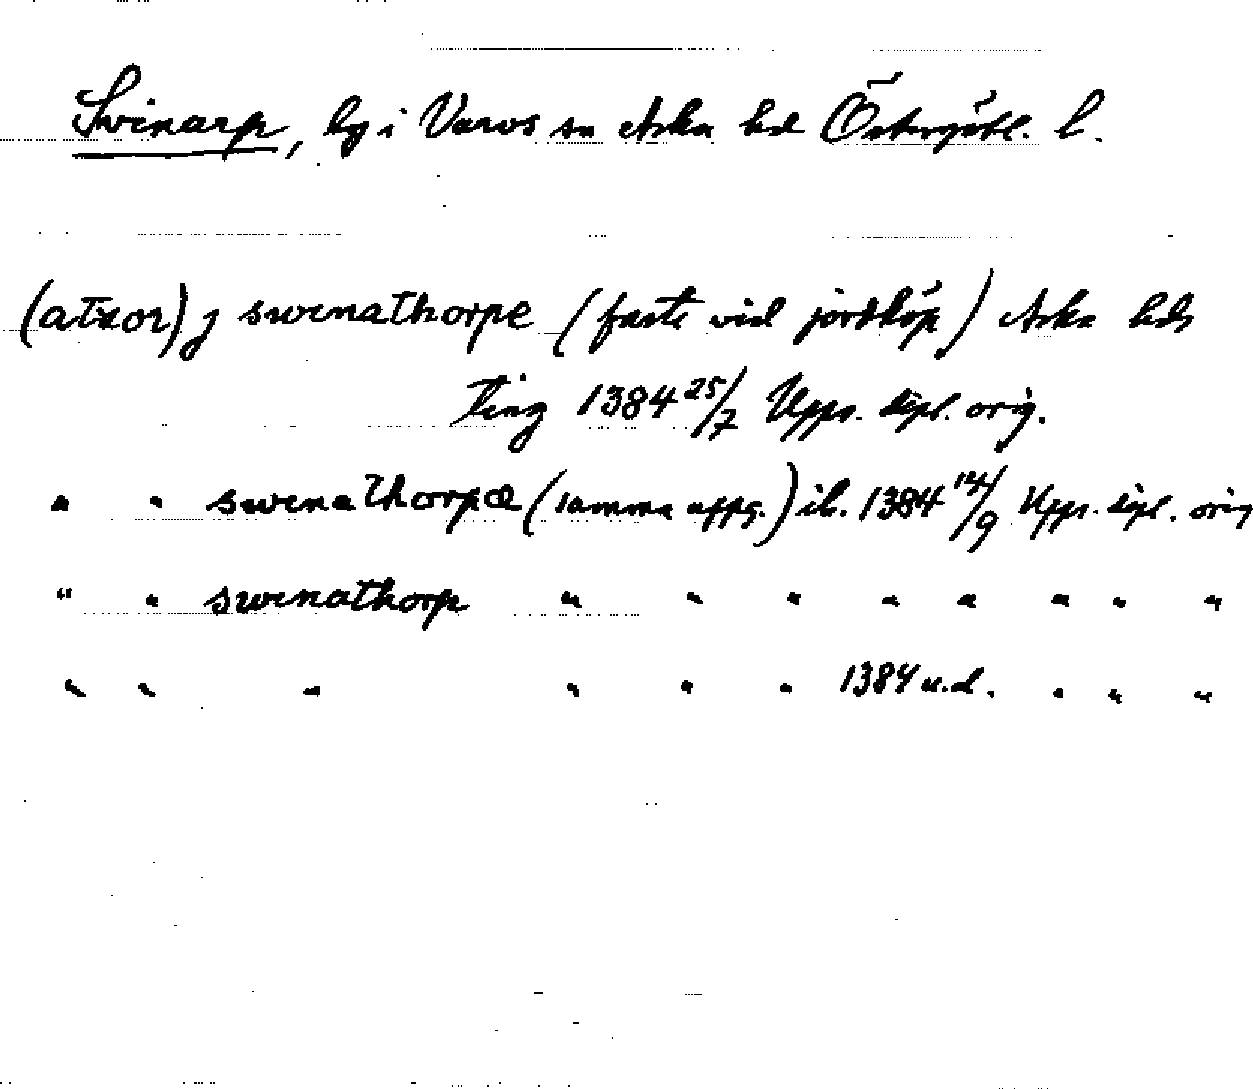 Svinarp, by i Varvs sn Aska hd Östergötl. l.
(atxor) j swenathorpe (faste vid jordköp) Aska hds
ting 1384 25/7 Upps. dipl. orig.
" " swenathorpæ (samma uppg.) ib. 1384 14/9 Upps. dipl. orig
" " swenathorp " " " " " " " "
" " " " " " 1384 u.d. " " "